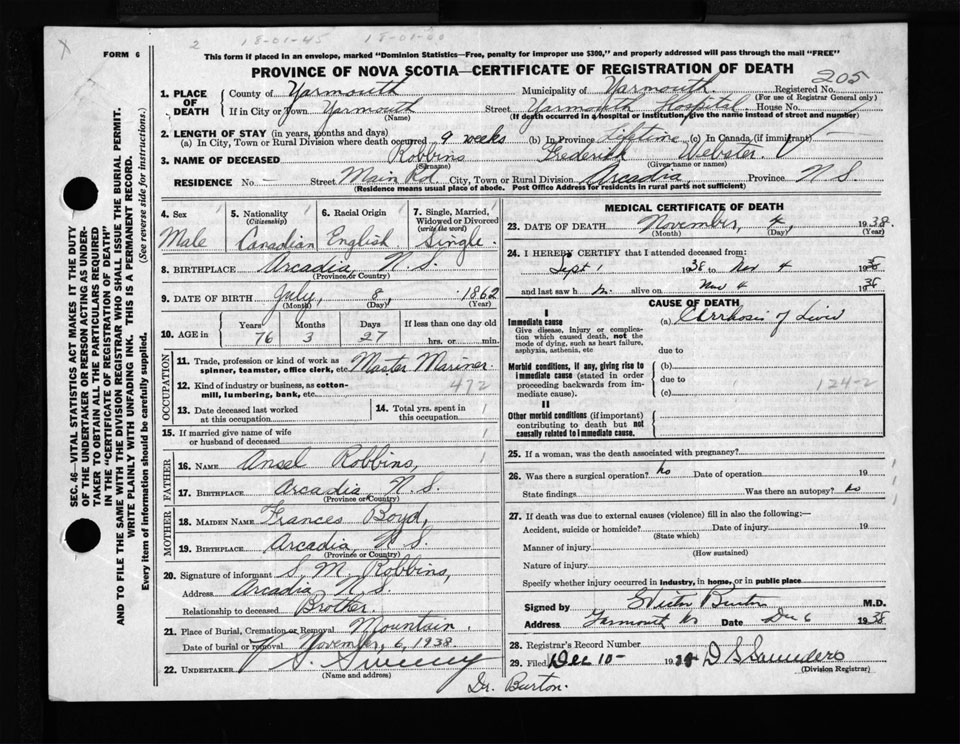 2 18-01-45 18-01-00
FORM 6
This form if placed in an envelope, marked "Dominion Statistics—Free, penalty for improper use $300," and properly addressed will pass through the mail "FREE"
PROVINCE OF NOVA SCOTIA—CERTIFICATE OF REGISTRATION OF DEATH
205
1. PLACE OF DEATH County of Yarmouth Municipality of Yarmouth. Registered No.
(For use of Registrar General only)
If in City or Town Yarmouth Street Yarmouth Hospital. House No.
(Name) (If death occurred in a hospital or institution, give the name instead of street and number)
2. LENGTH OF STAY (in years, months and days)
(a) In City, Town or Rural Division where death occurred 9 weeks (b) In Province Lifetime (c) In Canada (if immigrant)
3. NAME OF DECEASED Robbins Frederick Webster.
(Surname) (Given name or names)
RESIDENCE No. Street Main Rd. City, Town or Rural Division Arcadia, Province N.S.
(Residence means usual place of abode. Post Office Address for residents in rural parts not sufficient)
SEC. 46—VITAL STATISTICS ACT MAKES IT THE DUTY
OF THE UNDERTAKER OR PERSON ACTING AS UNDER-
TAKER TO OBTAIN ALL THE PARTICULARS REQUIRED
IN THE "CERTIFICATE OF REGISTRATION OF DEATH"
AND TO FILE THE SAME WITH THE DIVISION REGISTRAR WHO SHALL ISSUE THE BURIAL PERMIT.
WRITE PLAINLY WITH UNFADING INK. THIS IS A PERMANENT RECORD.
Every item of information should be carefully supplied. (See reverse side for instructions.)
4. Sex 5. Nationality 6. Racial Origin 7. Single, Married,
(Citizenship) Widowed or Divorced
(write the word)
Male Canadian English Single.
8. BIRTHPLACE Arcadia, N.S.
(Province or Country)
9. DATE OF BIRTH July, 8, 1862
(Month) (Day) (Year)
10. AGE in Years Months Days If less than one day old
76 3 27 hrs. or min.
OCCUPATION
11. Trade, profession or kind of work as
spinner, teamster, office clerk, etc. Master Mariner.
12. Kind of industry or business, as cotton-
mill, lumbering, bank, etc. 472
13. Date deceased last worked
at this occupation
14. Total yrs. spent in
this occupation
15. If married give name of wife
or husband of deceased
FATHER
16. NAME Ansel Robbins,
17. BIRTHPLACE Arcadia N.S.
(Province or Country)
MOTHER
18. MAIDEN NAME Frances Boyd,
19. BIRTHPLACE Arcadia, N.S.
(Province or Country)
20. Signature of informant S. M. Robbins,
Address Arcadia N.S.
Relationship to deceased Brother.
21. Place of Burial, Cremation or Removal Mountain.
Date of burial or removal November, 6, 1938
22. UNDERTAKER V. S. Sweeny
(Name and address)
Dr. Burton.
MEDICAL CERTIFICATE OF DEATH
23. DATE OF DEATH November, 4 1938.
(Month) (Day) (Year)
24. I HEREBY CERTIFY that I attended deceased from:
Sept 1 1938 to Nov 4 1938
and last saw h im alive on Nov 4 1938
CAUSE OF DEATH
I
Immediate cause
Give disease, injury or complica-
tion which caused death, not the
mode of dying, such as heart failure,
asphyxia, asthenia, etc
(a) Cirrhosis of Liver
due to
Morbid conditions, if any, giving rise to
immediate cause (stated in order
proceeding backwards from im-
mediate cause).
(b)
due to
(c)
124-2
II
Other morbid conditions (if important)
contributing to death but not
causally related to immediate cause.
25. If a woman, was the death associated with pregnancy?
26. Was there a surgical operation? No Date of operation 19
State findings Was there an autopsy? No
27. If death was due to external causes (violence) fill in also the following:—
Accident, suicide or homicide? Date of injury 19
(State which)
Manner of injury
(How sustained)
Nature of injury
Specify whether injury occurred in industry, in home, or in public place
Signed by Burton M.D.
Address Yarmouth NS Date Dec 6 1938
28. Registrar's Record Number
29. Filed Dec 10- 1938 D S Saunders
(Division Registrar)